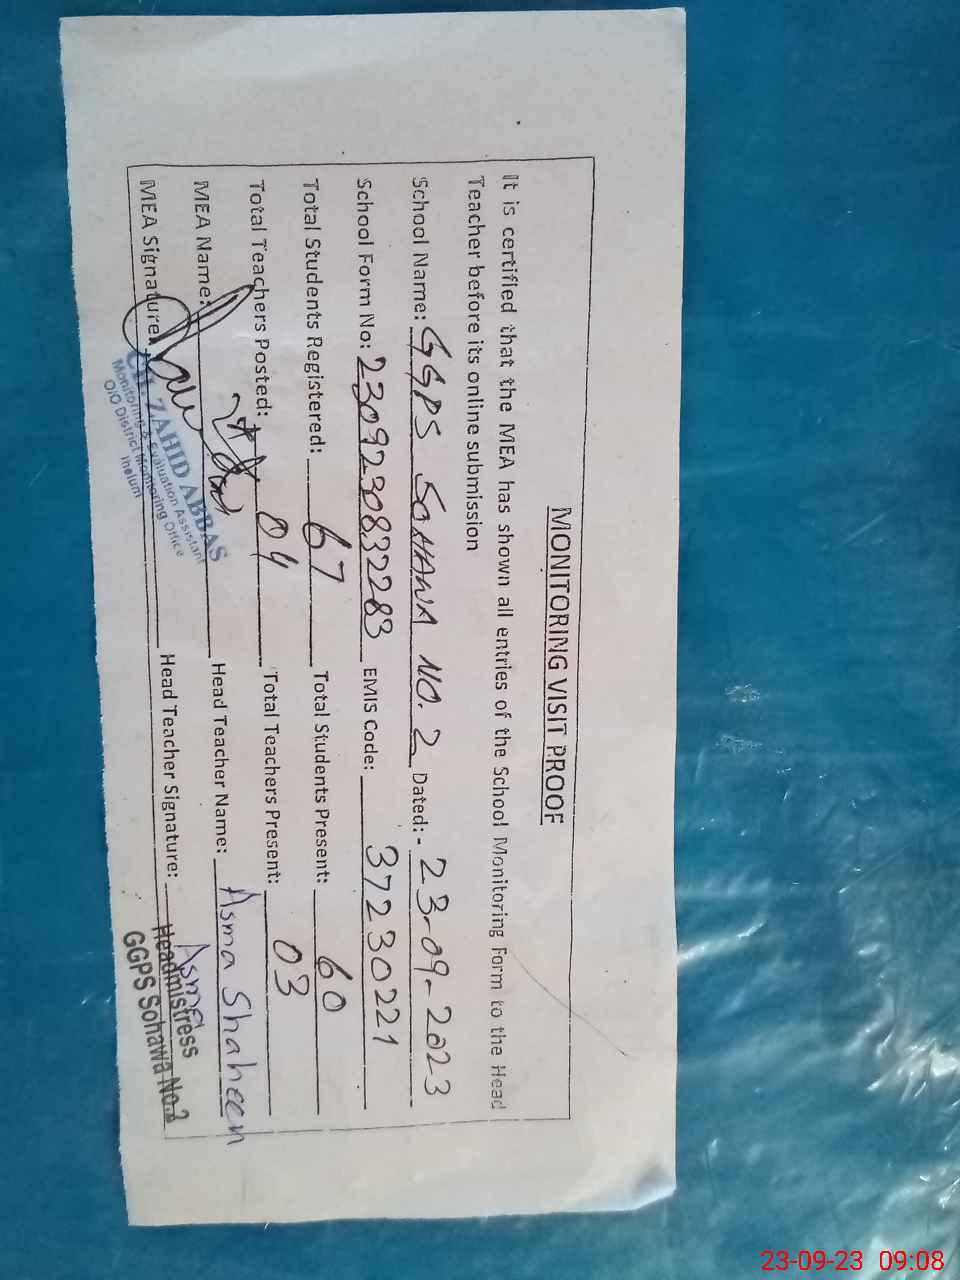 MONITORING VISIT PROOF
It is certified that the MEA has shown all entries of the School Monitoring Form to the Head
Teacher before its online submission
School Name: GGPS SOHAWA NO. 2 Dated:- 23-09-2023
School Form No: 2309230832283 EMIS Code: 37230221
Total Students Registered: 67 Total Students Present: 60
Total Teachers Posted: 04 Total Teachers Present: 03
MEA Name: Head Teacher Name: Asma Shaheen
MEA Signature: Head Teacher Signature: Asma
CH. ZAHID ABBAS
Monitoring & Evaluation Assistant
O/O District Monitoring Office
Jhelum
Headmistress
GGPS Sohawa No.2
23-09-23 09:08